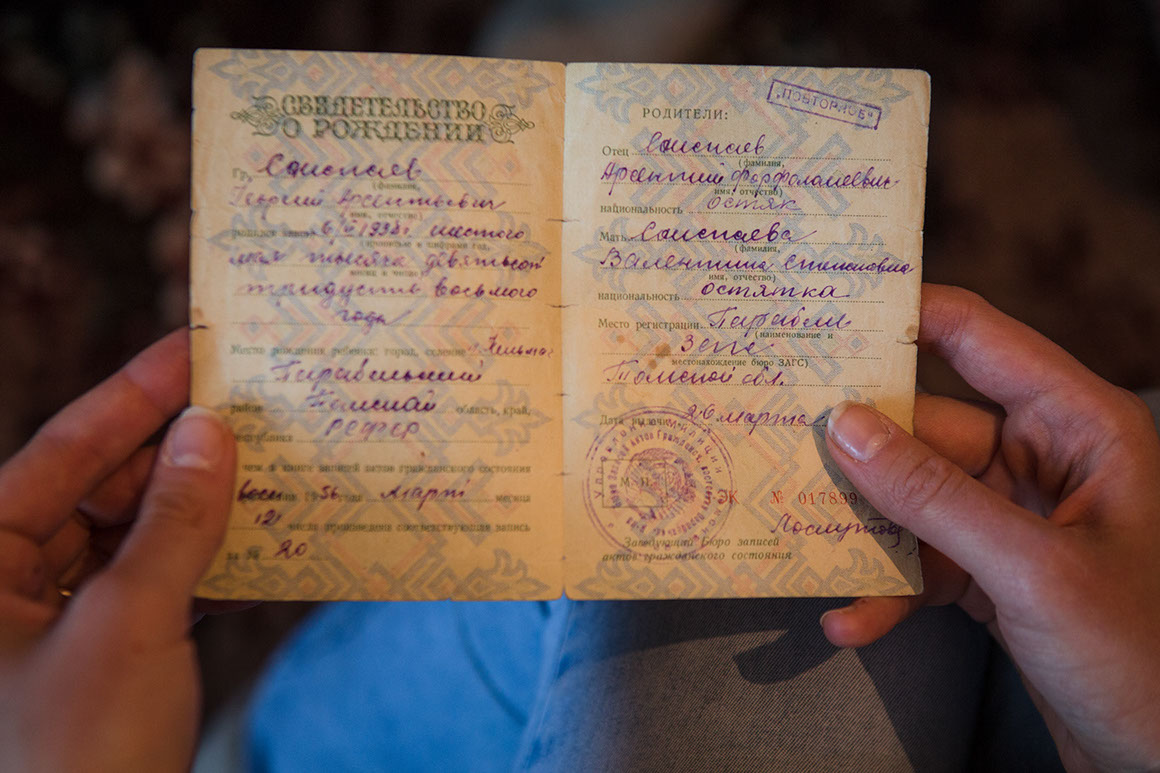 СВИДЕТЕЛЬСТВО
О РОЖДЕНИИ
Гр. Соиспаев
(фамилия,
Георгий Арсентьевич
имя, отчество)
родился 6/V 1938г шестого
(прописью и цифрами год,
мая тысяча девятьсот
месяц и число)
тридцать восьмого
года
Место рождения ребенка: город, селение
Парабельский
район Томской область, край,
республика РСФСР
о чем в книге записей актов гражданского состояния
1956 года март месяца
12 числа произведена соответствующая запись
за № 20
„ПОВТОРНОЕ“
РОДИТЕЛИ:
Отец Соиспаев
(фамилия,
Арсентий
имя, отчество)
национальность остяк
Мать Соиспаева
(фамилия,
Валентина
имя, отчество)
национальность остячка
Место регистрации
(наименование и
ЗАГС
местонахождение бюро ЗАГС)
Томской обл.
Дата выдачи 26 марта
М. П.
ЭК № 017899
Заведующий бюро записей
актов гражданского состояния